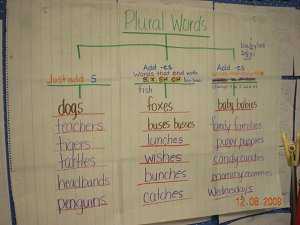 Plural Words
babyies
boys
Just add S
Add -es
Words that end with
S, X, SH, CH
fish
Add -es
Words that end
change y to i add es
dogs
teachers
tigers
turtles
headbands
penguins
foxes
buses busses
lunches
wishes
bunches
catches
baby babies
family families
puppy puppies
candy candies
mommy mommies
Wednesdays
12.08.2009